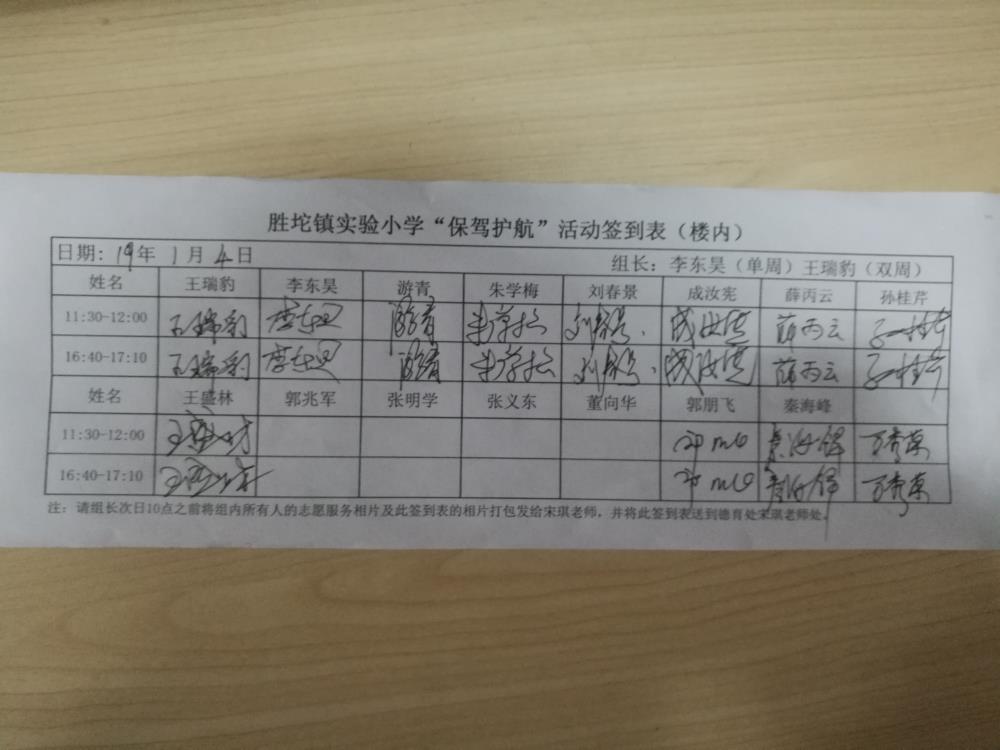 胜坨镇实验小学“保驾护航”活动签到表（楼内）
日期：19年 1月 4日 组长：李东昊（单周）王瑞豹（双周）
姓名 王瑞豹 李东昊 游青 朱学梅 刘春景 成汝宪 薛丙云 孙桂芹
11:30-12:00 王瑞豹 李东昊 游青 朱学梅 刘春景 成汝宪 薛丙云 孙桂芹
16:40-17:10 王瑞豹 李东昊 游青 朱学梅 刘春景 成汝宪 薛丙云 孙桂芹
姓名 王盛林 郭兆军 张明学 张义东 董向华 郭朋飞 秦海峰
11:30-12:00 王盛林 秦海峰
16:40-17:10 王盛林 秦海峰
注：请组长次日10点之前将组内所有人的志愿服务相片及此签到表的相片打包发给宋琪老师，并将此签到表送到德育处宋琪老师处。